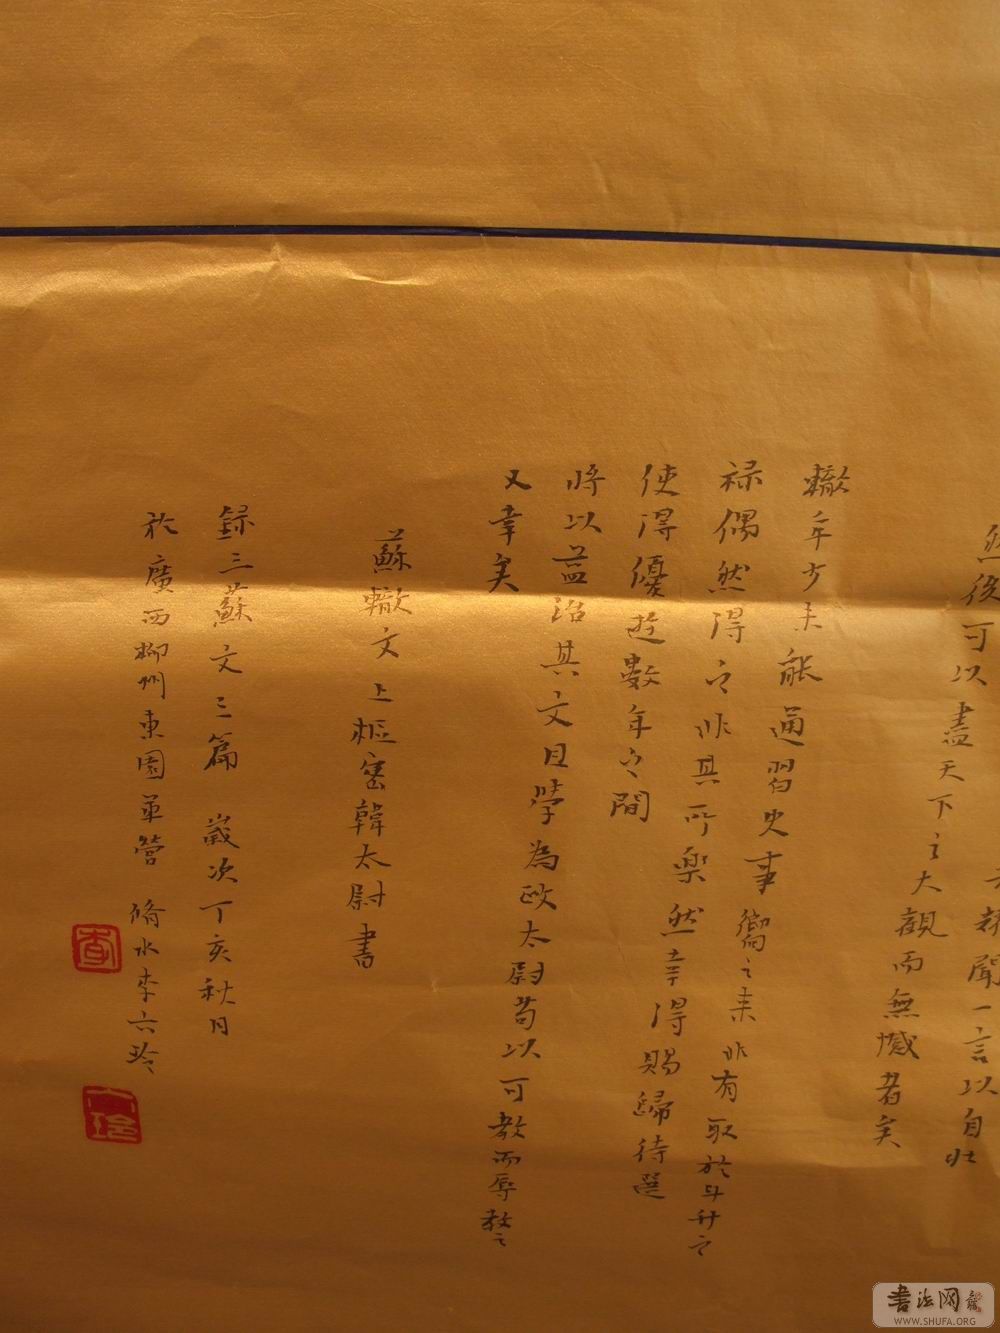 聞一言以自壮
然後可以盡天下之大觀而無憾者矣
轍年少未能通習吏事嚮之来非有取於斗升之
禄偶然得之非其所樂然幸得賜歸待選
使得優遊數年之間
將以益治其文且學為政太尉苟以可教而辱教之
又幸矣
蘇轍文上樞密韓太尉書
録三蘇文三篇 歲次丁亥秋月
於廣西柳州東園軍營 脩水李六玲
李
六玲
書法网
WWW.SHUFA.ORG